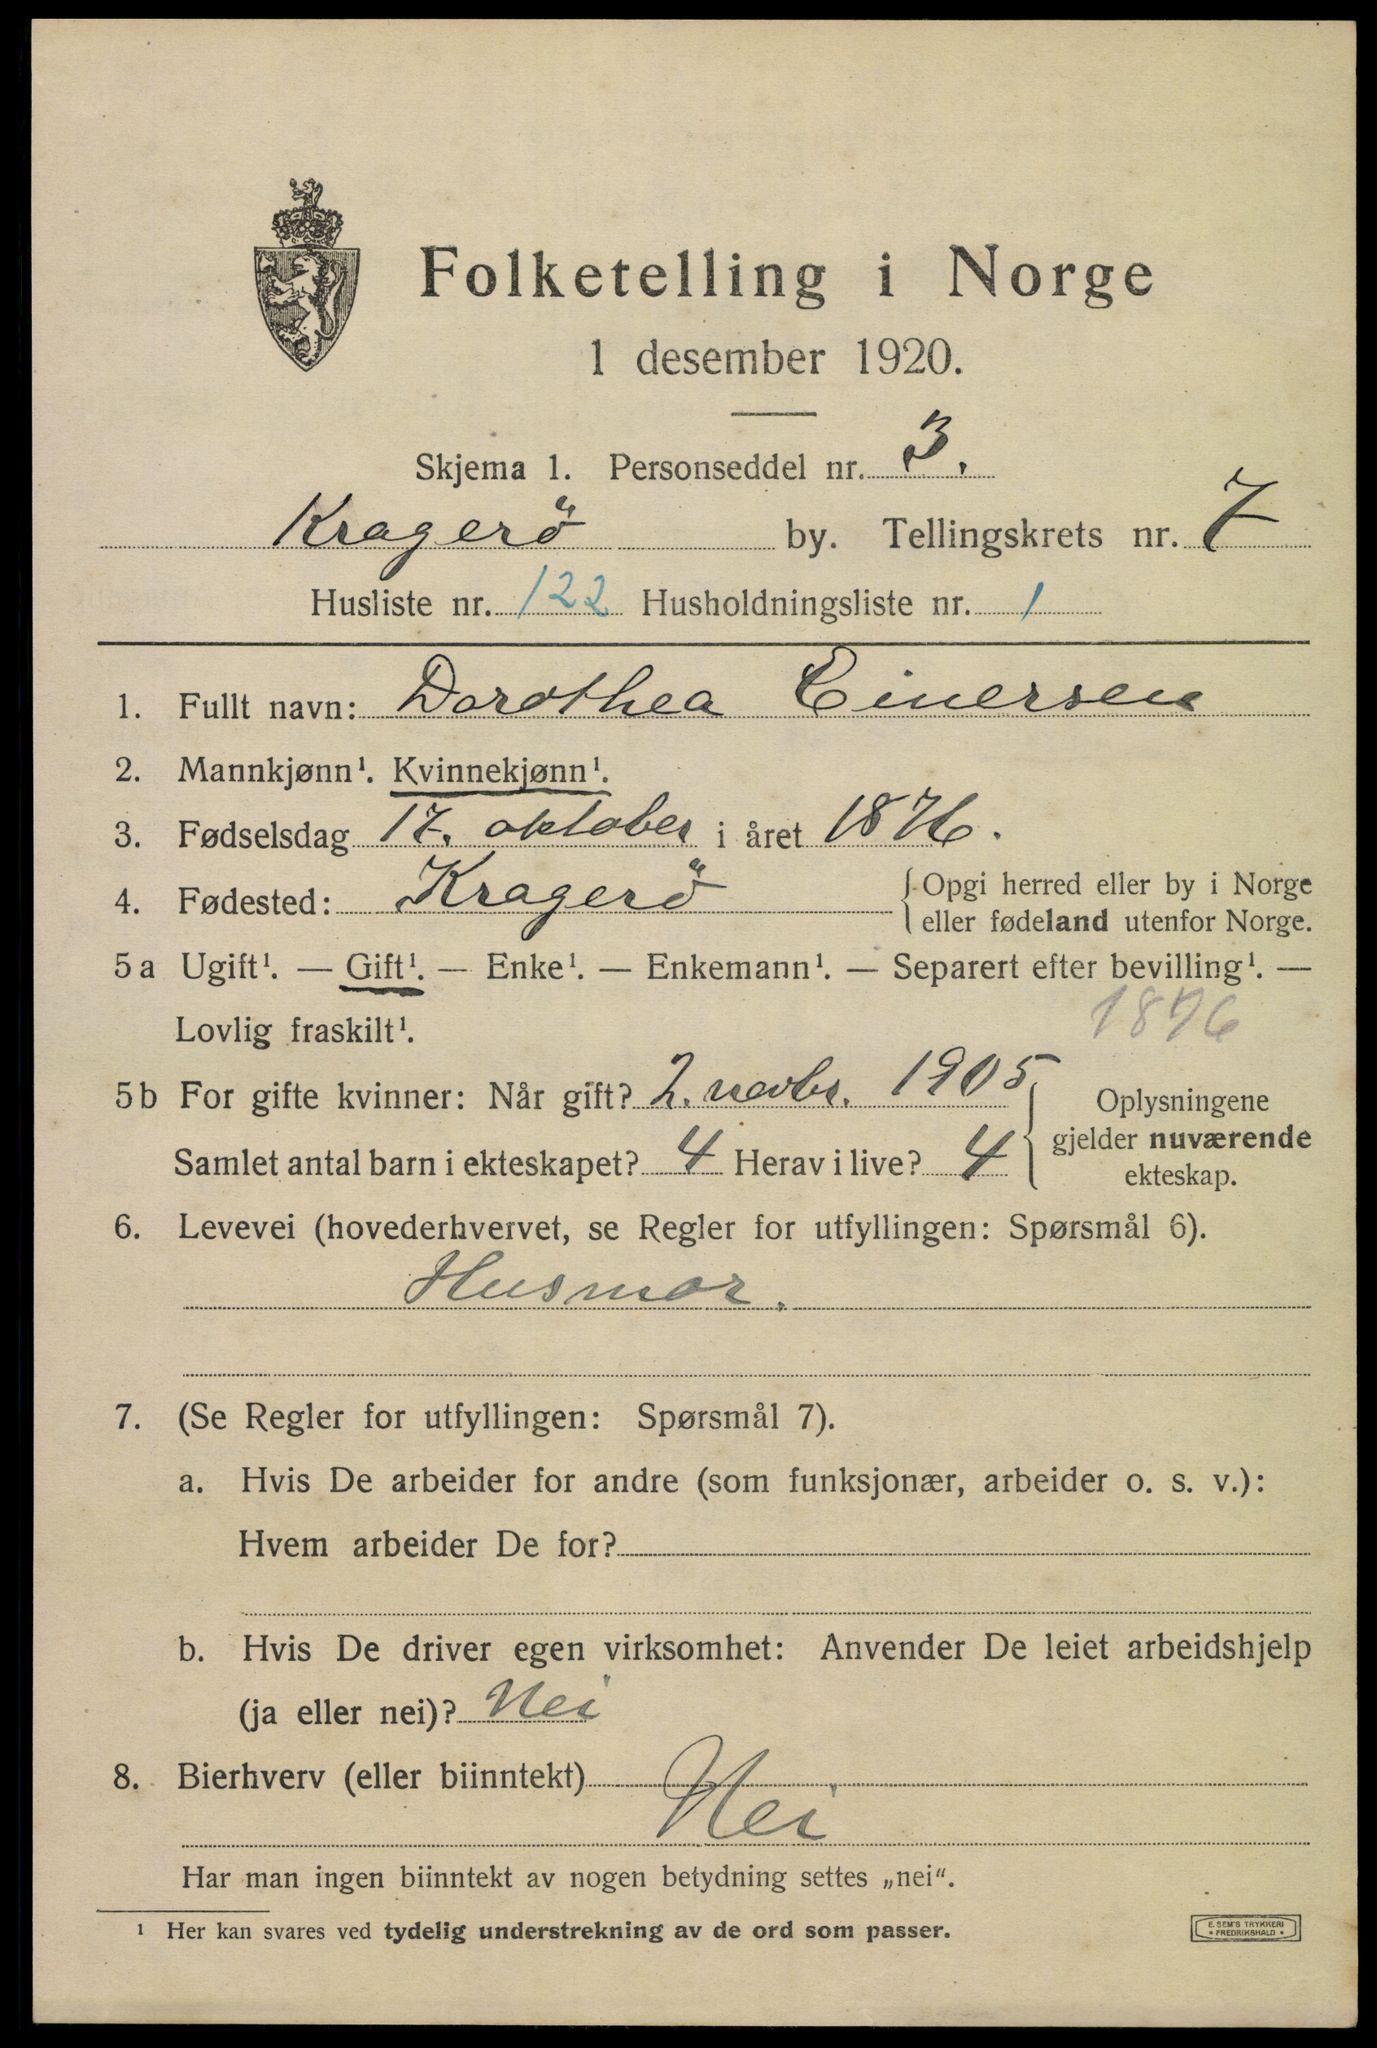 Folketelling i Norge
1 desember 1920.
Skjema 1. Personseddel nr. 3.
Kragerö by. Tellingskrets nr. 7
Husliste nr. 122 Husholdningsliste nr. 1
1. Fullt navn: Dorothea Einersen
2. Mannkjønn¹. Kvinnekjønn¹.
3. Fødselsdag 17. oktober i året 1876.
4. Fødested: Kragerö { Opgi herred eller by i Norge
eller fødeland utenfor Norge.
5a Ugift¹. — Gift¹. — Enke¹. — Enkemann¹. — Separert efter bevilling¹. —
Lovlig fraskilt¹. 1876
5b For gifte kvinner: Når gift? 2. novbr. 1905
Samlet antal barn i ekteskapet? 4 Herav i live? 4
{ Oplysningene
gjelder nuværende
ekteskap.
6. Levevei (hovederhvervet, se Regler for utfyllingen: Spørsmål 6).
Husmor.
7. (Se Regler for utfyllingen: Spørsmål 7).
a. Hvis De arbeider for andre (som funksjonær, arbeider o. s. v.):
Hvem arbeider De for?
b. Hvis De driver egen virksomhet: Anvender De leiet arbeidshjelp
(ja eller nei)? Nei
8. Bierhverv (eller biinntekt)
Nei
Har man ingen biinntekt av nogen betydning settes „nei“.
¹ Her kan svares ved tydelig understrekning av de ord som passer.
E. SEM'S TRYKKERI
• FREDRIKSHALD •